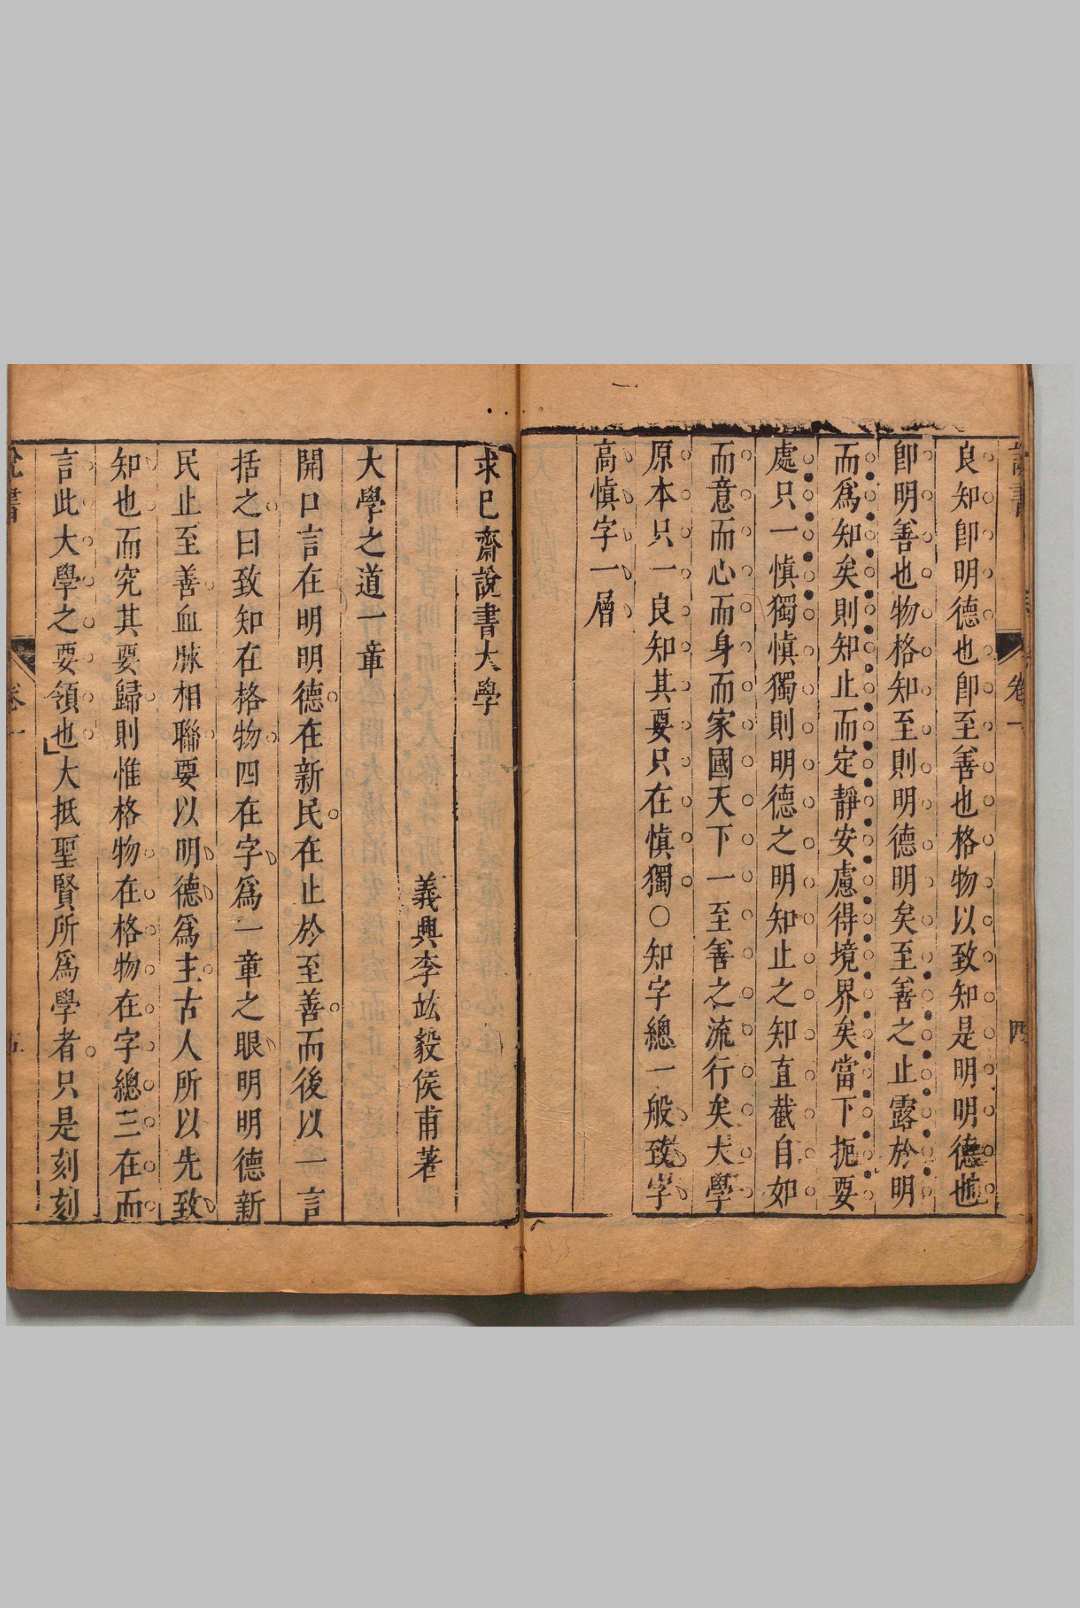 卷一
四
良知卽明德也卽至善也格物以致知是明明德也
卽明善也物格知至則明德明矣至善之止露於明
而爲知矣則知止而定靜安慮得境界矣當下扼要
處只一愼獨愼獨則明德之明知止之知直截自如
而意而心而身而家國天下一至善之流行矣大學
原本只一良知其要只在愼獨○知字總一般致字
高愼字一層
求巳齋說書大學
義興李竑毅侯甫著
大學之道一章
開口言在明明德在新民在止於至善而後以一言
括之曰致知在格物四在字爲一章之眼明明德新
民止至善血脉相聯要以明德爲主古人所以先致
知也而究其要歸則惟格物在格物在字總三在而
言此大學之要領也大抵聖賢所爲學者只是刻刻
說書
卷一
五